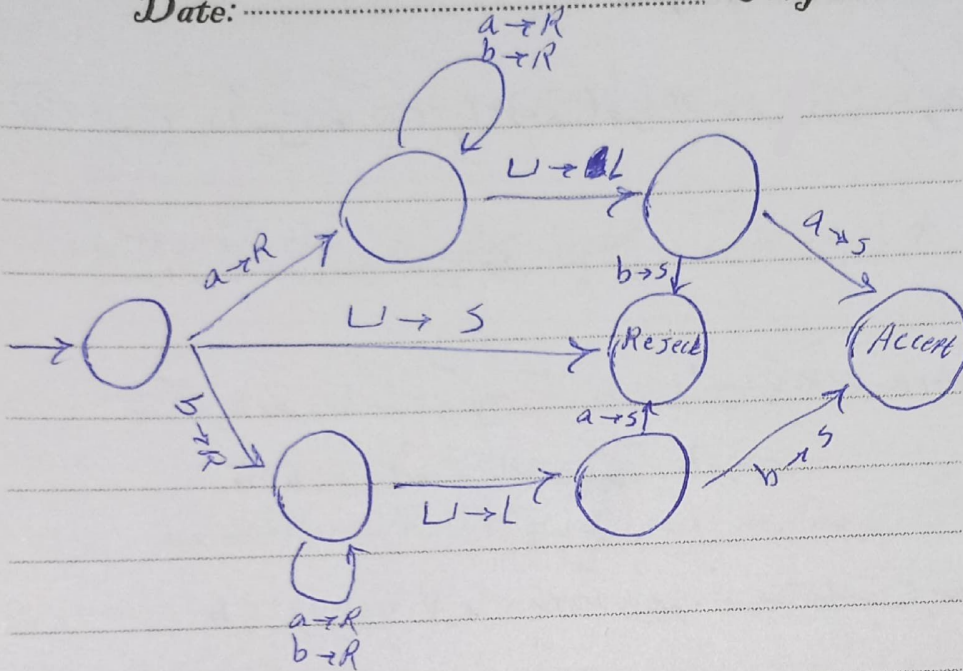 Date:
a→R
b→R
⊔→L
a→R
a→s
b→s
⊔→ S
Reject
Accept
b→R
a→s
b→s
⊔→L
a→R
b→R